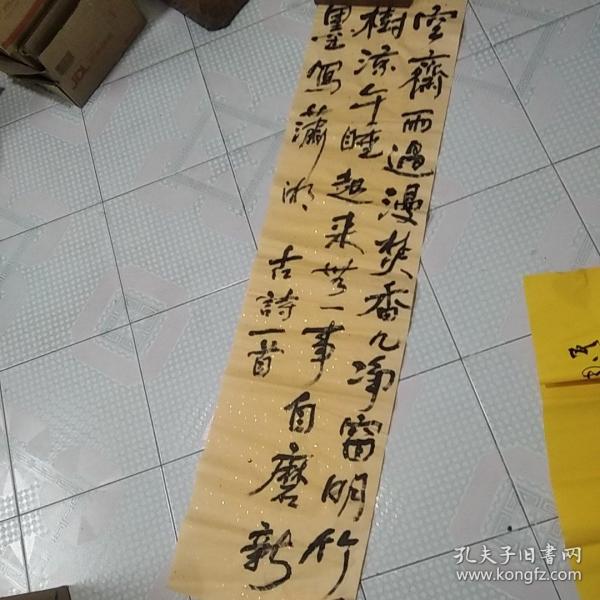 空齋雨過漫焚香几淨窗明竹
樹涼午睡起来無一事自磨新
墨寫蕭湘
古詩一首
JDL
孔夫子旧书网
www.kongfz.com